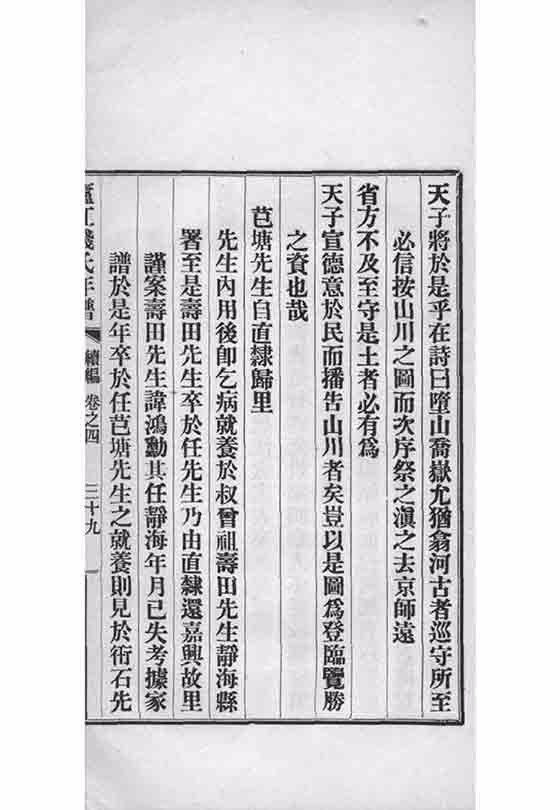 天子將於是乎在詩曰墮山喬嶽允猶翕河古者巡守所至
必信按山川之圖而次序祭之滇之去京師遠
省方不及至守是土者必有爲
天子宣德意於民而播告山川者矣豈以是圖爲登臨覽勝
之資也哉
芑塘先生自直隸歸里
先生內用後卽乞病就養於叔曾祖壽田先生靜海縣
署至是壽田先生卒於任先生乃由直隸還嘉興故里
謹案壽田先生諱鴻勳其任靜海年月已失考據家
譜於是年卒於任芑塘先生之就養則見於衎石先
廬江錢氏年譜 續編 卷之四 三十九